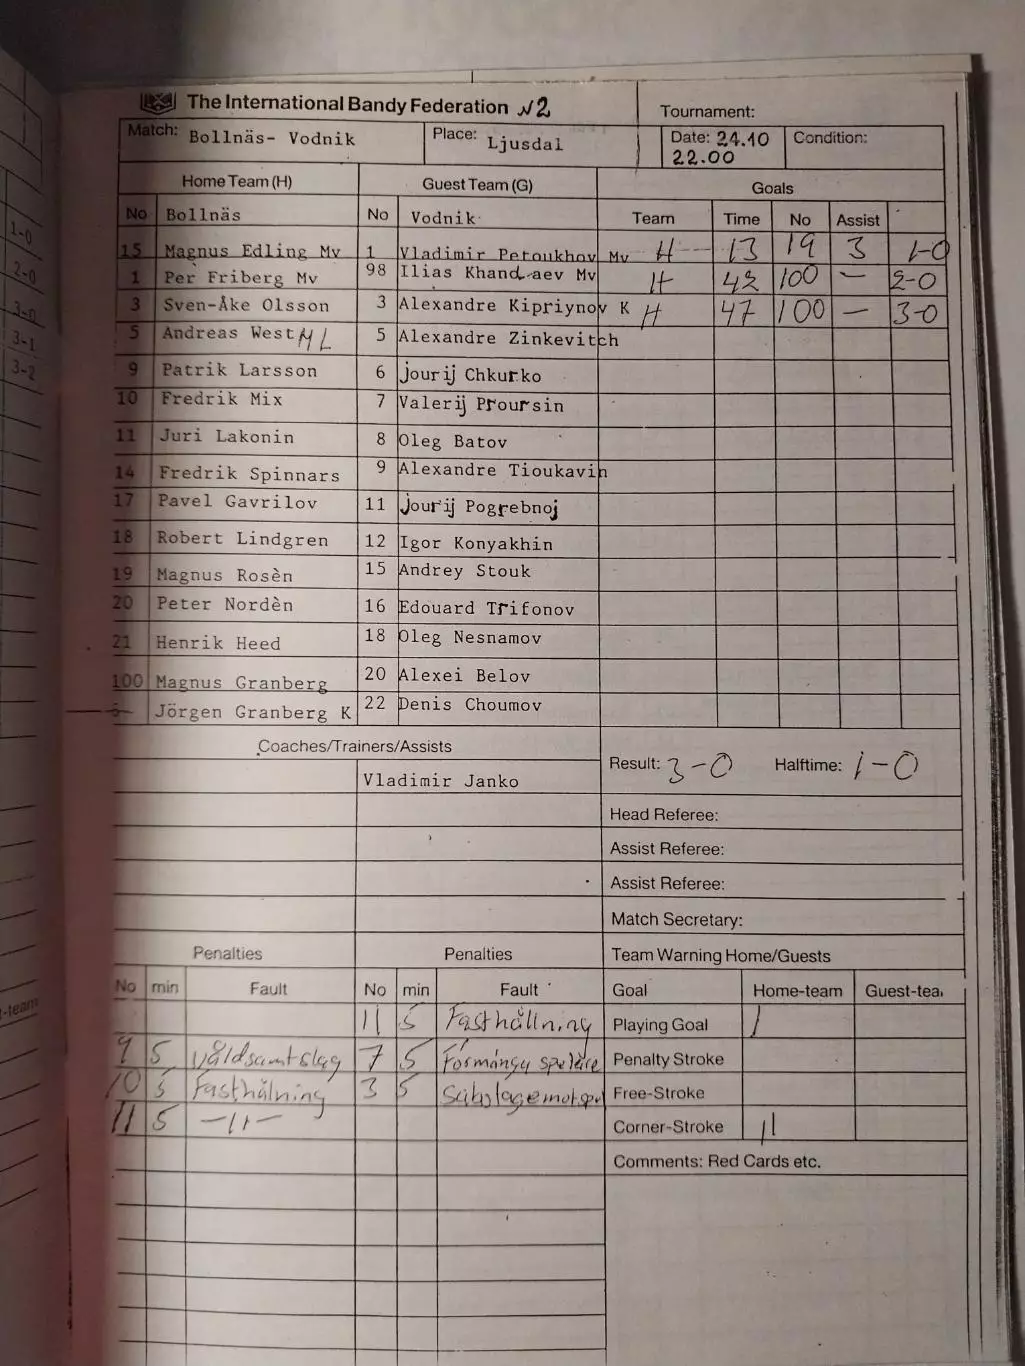 The International Bandy Federation N2
Tournament:
Match: Bollnäs- Vodnik Place: Ljusdal Date: 24.10 22.00 Condition:
Home Team (H) Guest Team (G) Goals
No Bollnäs No Vodnik Team Time No Assist
15 Magnus Edling Mv 1 Vladimir Petoukhov Mv H 13 19 3 1-0
1 Per Friberg Mv 98 Ilias Khandaev Mv H 42 100 — 2-0
3 Sven-Åke Olsson 3 Alexandre Kipriynov K H 47 100 — 3-0
5 Andreas West ML 5 Alexandre Zinkevitch
9 Patrik Larsson 6 Jourij Chkurko
10 Fredrik Mix 7 Valerij Proursin
11 Juri Lakonin 8 Oleg Batov
14 Fredrik Spinnars 9 Alexandre Tioukavin
17 Pavel Gavrilov 11 Jourij Pogrebnoj
18 Robert Lindgren 12 Igor Konyakhin
19 Magnus Rosèn 15 Andrey Stouk
20 Peter Nordèn 16 Edouard Trifonov
21 Henrik Heed 18 Oleg Nesnamov
100 Magnus Granberg 20 Alexei Belov
Jörgen Granberg K 22 Denis Choumov
Coaches/Trainers/Assists Result: 3-0 Halftime: 1-0
Vladimir Janko
Head Referee:
Assist Referee:
Assist Referee:
Match Secretary:
Penalties Penalties Team Warning Home/Guests
No min Fault No min Fault Goal Home-team Guest-tea
11 5 Fasthållning Playing Goal |
9 5 våldsamt slag 7 5 För många spelare Penalty Stroke
10 5 Fasthålning 3 5 Free-Stroke
11 5 —11— Corner-Stroke ||
Comments: Red Cards etc.
1-0
2-0
3-0
3-1
3-2
t-team